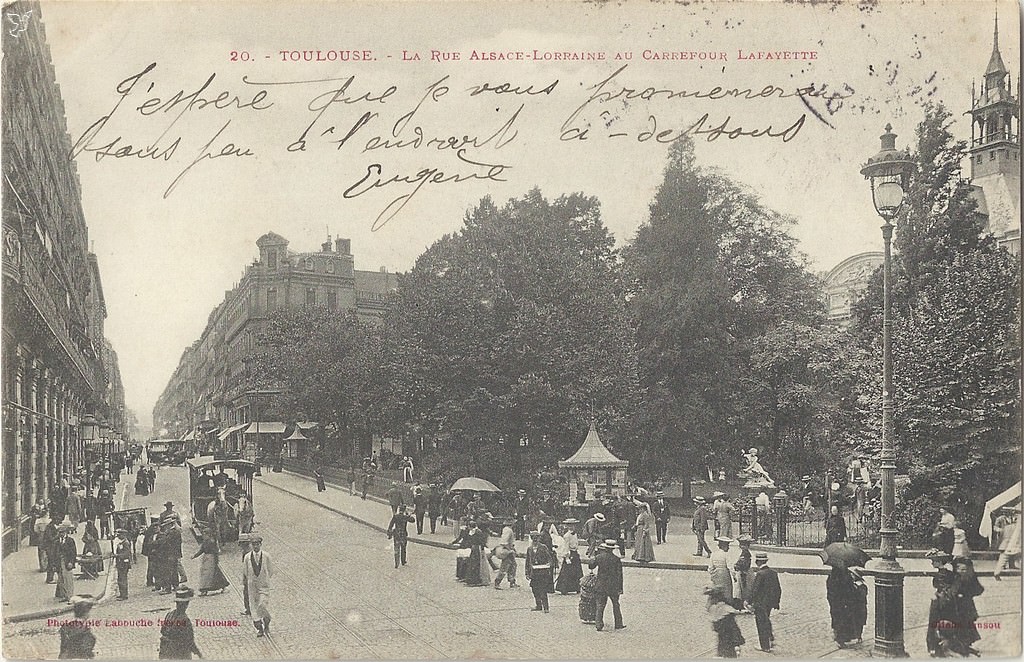 20. - TOULOUSE. - La Rue Alsace-Lorraine au Carrefour Lafayette
J'espère que je vous promènerai
sous peu à l'endroit ci-dessous
Eugène
Phototypie Labouche frères Toulouse.